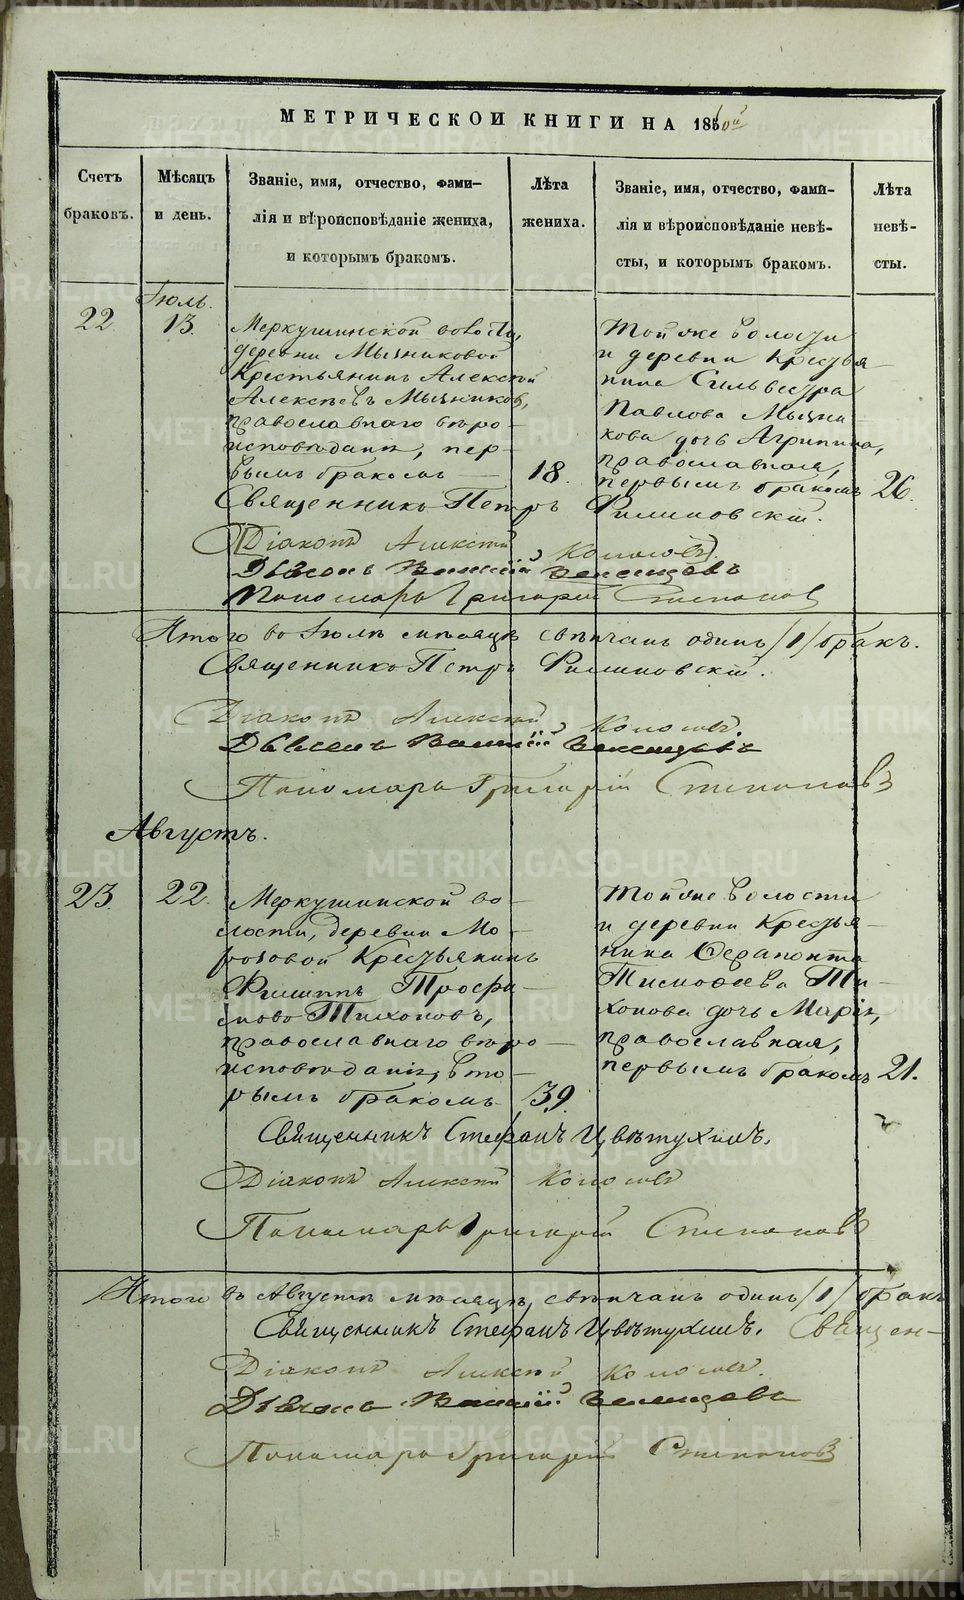 МЕТРИЧЕСКОЙ КНИГИ НА 1860й
Счетъ
браковъ.
Мѣсяцъ
и день.
Званіе, имя, отчество, фами-
лія и вѣроисповѣданіе жениха,
и которымъ бракомъ.
Лѣта
жениха.
Званіе, имя, отчество, фами-
лія и вѣроисповѣданіе невѣ-
сты, и которымъ бракомъ.
Лѣта
невѣ-
сты.
Іюль.
22
13.
Меркушинской волости,
деревни Мызниковой
Крестьянинъ Алексѣй
Алексѣевъ Мызниковъ,
православнаго вѣро-
исповѣданія, пер-
вымъ бракомъ
18.
Той же волости
и деревни Крестья-
нина Сильвестра
Павлова Мызни-
кова дочь Агрипина,
православная,
первымъ бракомъ
26.
Священникъ Петръ Филиповскій.
Діаконъ Алексѣй
Пономарь Григорій Степановъ
Итого въ Іюлѣ мѣсяцѣ свѣнчанъ одинъ /1/ бракъ.
Священникъ Петръ Филиповскій.
Діаконъ Алексѣй
Пономарь Григорій Степановъ
Августъ.
23.
22.
Меркушинской во-
лости, деревни Мо-
розовой Крестьянинъ
Филиппъ Трофи-
мовъ Тихоновъ,
православнаго вѣро-
исповѣданія, вто-
рымъ бракомъ
39.
Той же волости
и деревни Крестья-
нина Ферапонта
Тимофеева Ти-
хонова дочь Марія,
православная,
первымъ бракомъ
21.
Священникъ Стефанъ Цвѣтухинъ.
Діаконъ Алексѣй
Пономарь Григорій Степановъ
Итого въ Августѣ мѣсяцѣ, свѣнчанъ одинъ /1/ бракъ
Священникъ Стефанъ Цвѣтухинъ. Священ-
Діаконъ Алексѣй
Пономарь Григорій Степановъ
METRIKI.GASO-URAL.RU